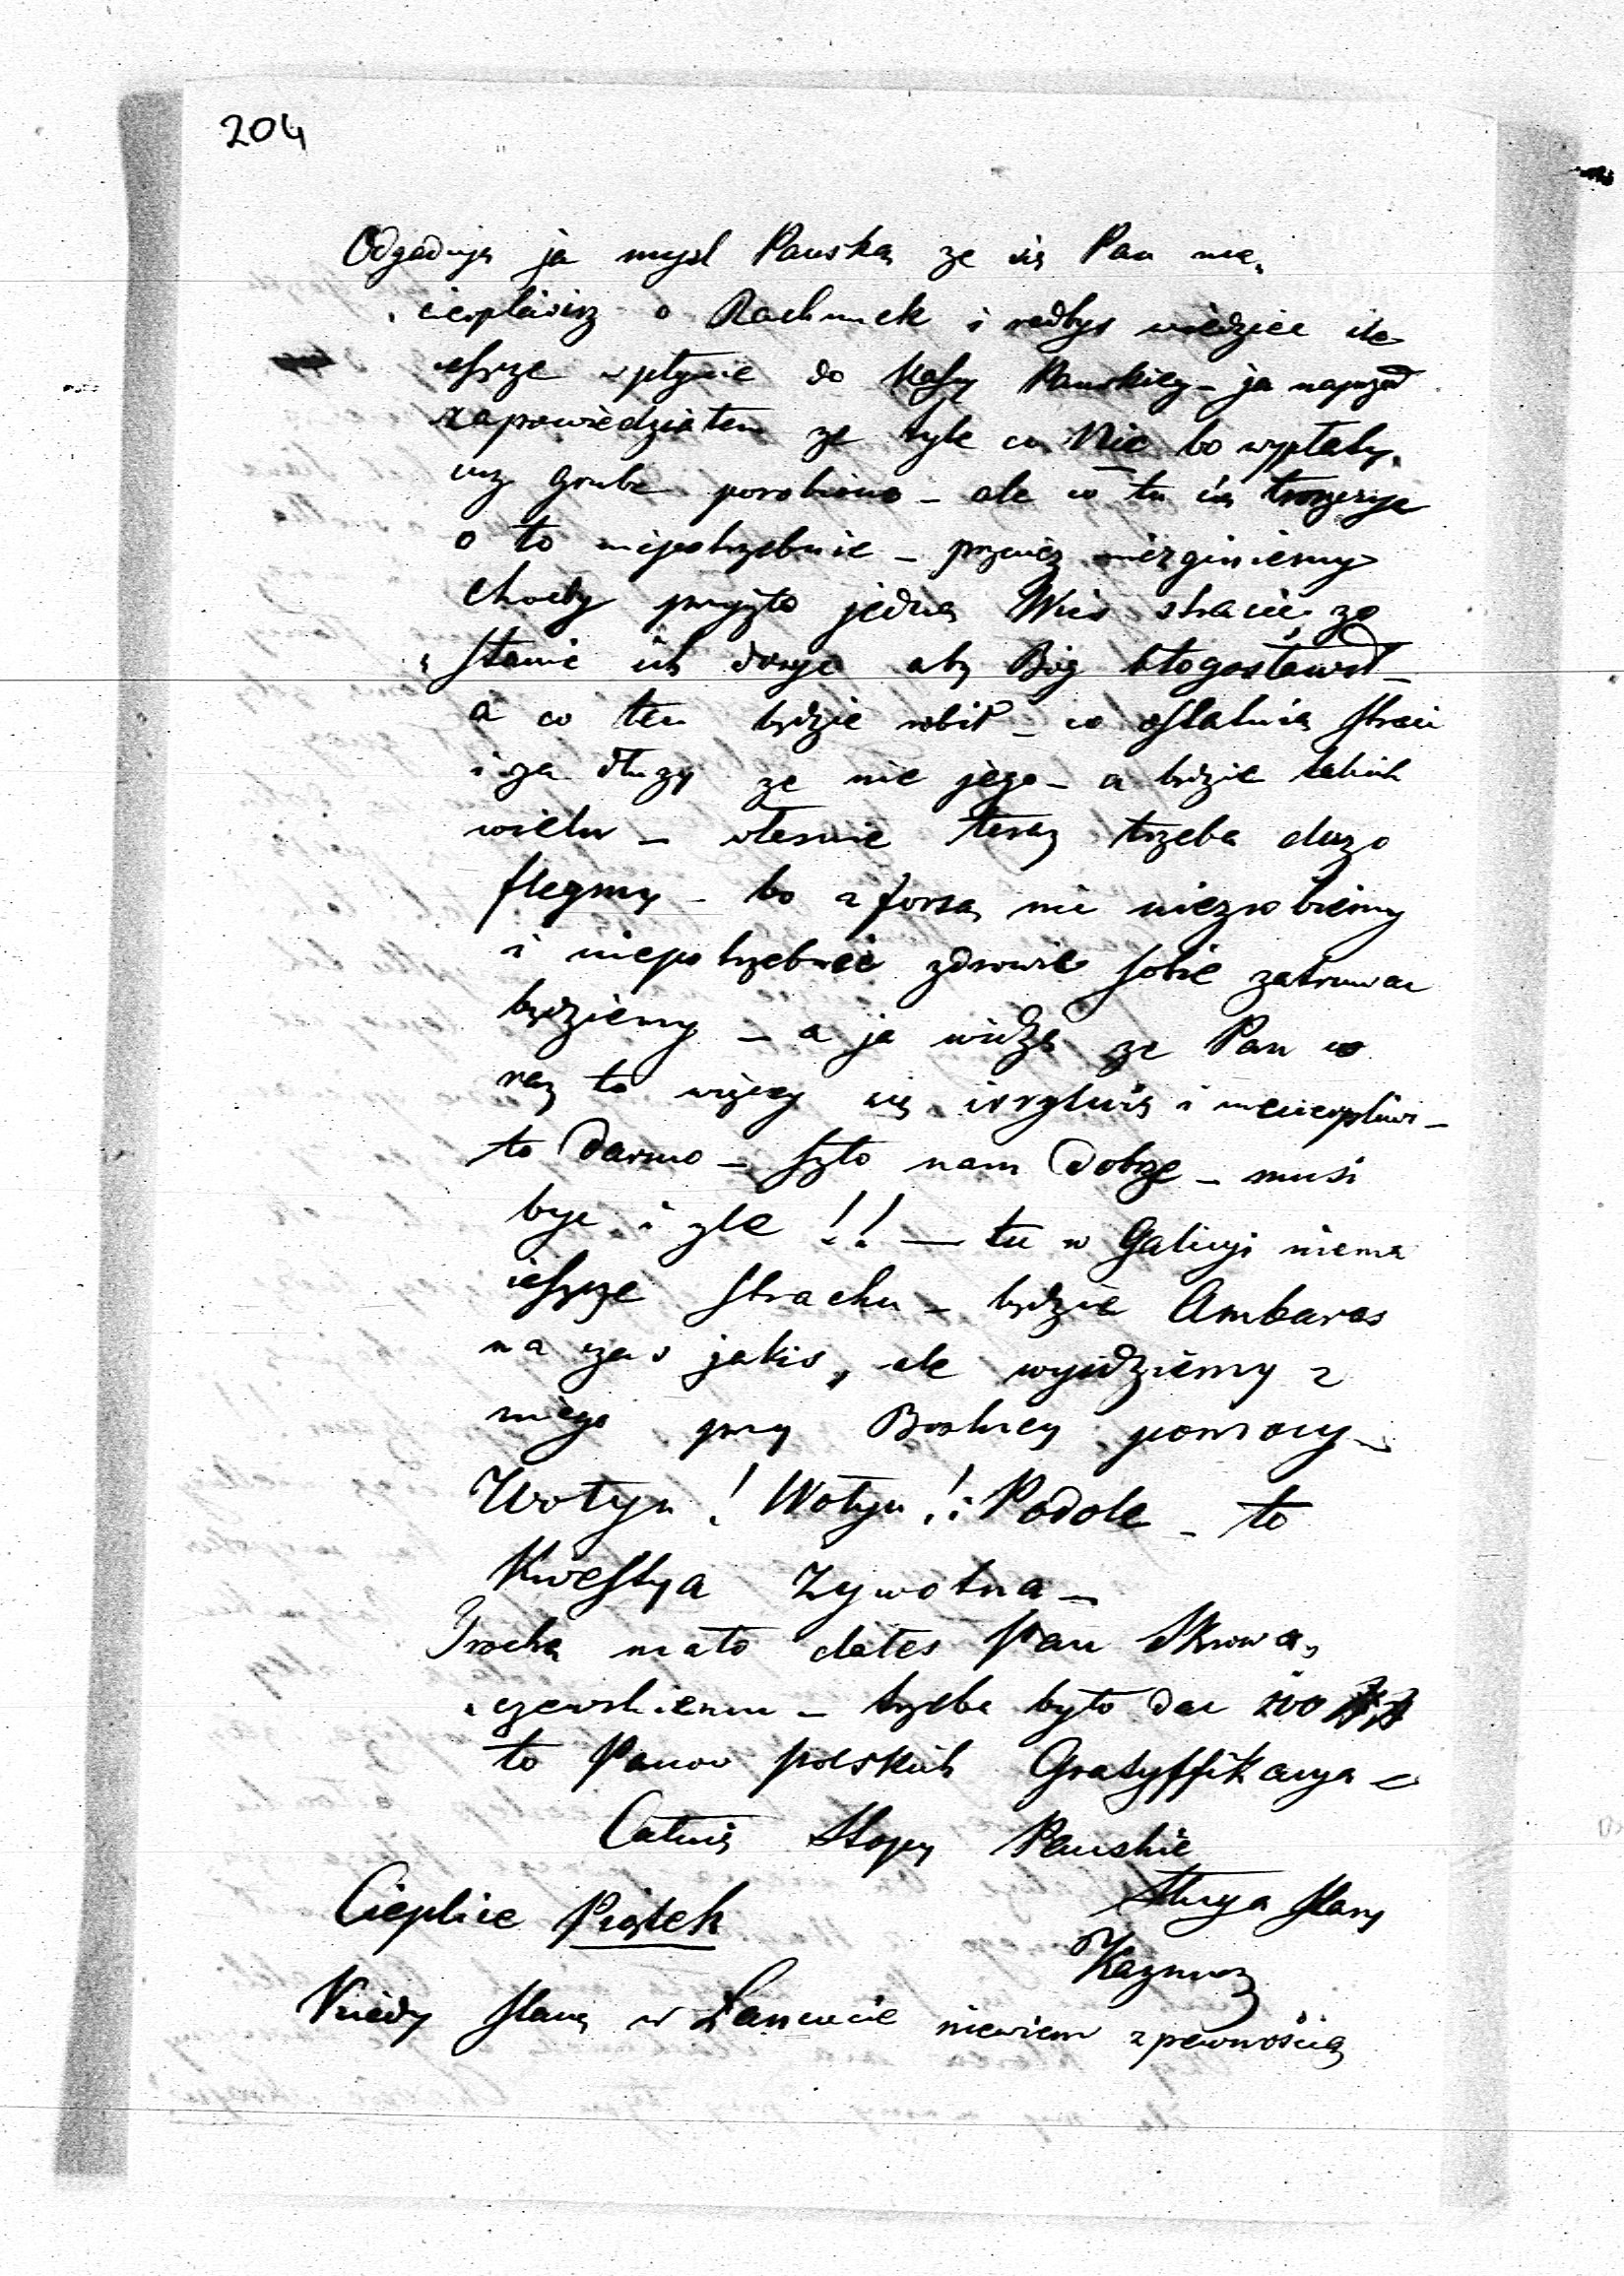 204
Odgaduję ja mysl Panską ze się Pan nie,
,cierpliwisz o Rachunek i radbys wiedziec ile
ieszcze wpłynie do Kassy Panskiey – ja naprzod
zapowiedziałem ze tyle co Nic bo wypłaty,
 grube porobiono – ale co tu się troszczyc
o to niepotrzebnie – przeciez niezginiemy
chocby przyszło jedną Wies stracic zo
,stanie ich dosyc aby Bóg błogosławił –
a co ten będzie robił – co ostatnią straci
i za długi ze nie jego – a będzie takich
wielu – własnie teraz trzeba duzo
flegmy – bo z forsą nic niezrobiemy
i niepotrzebnie zdrowie sobie zatruwac
będziemy – a ja widzę ze Pan co
raz to więcey się irrytuie i niecierpliwi –
to darmo – szło nam dobrze – musi
byc i zle !! — tu w Galicyi niema
ieszcze strachu – będzie Ambaras
na czas jakis, ale wyidziemy z
niego przy Boskiey pomocy –
Wołyn ! Wołyn ! i Podole – to
Kwestya Zywotna –
Trochę mało dałes Pan Skwa,
,czewskiemu – trzeba było dac 200
to Panow polskich Gratyffikacya –
Całuię Stopy Panskie
Sługa stary
Kazmierz
Cieplice Piątek
Kiedy stanę w Łancucie niewiem z pewnością